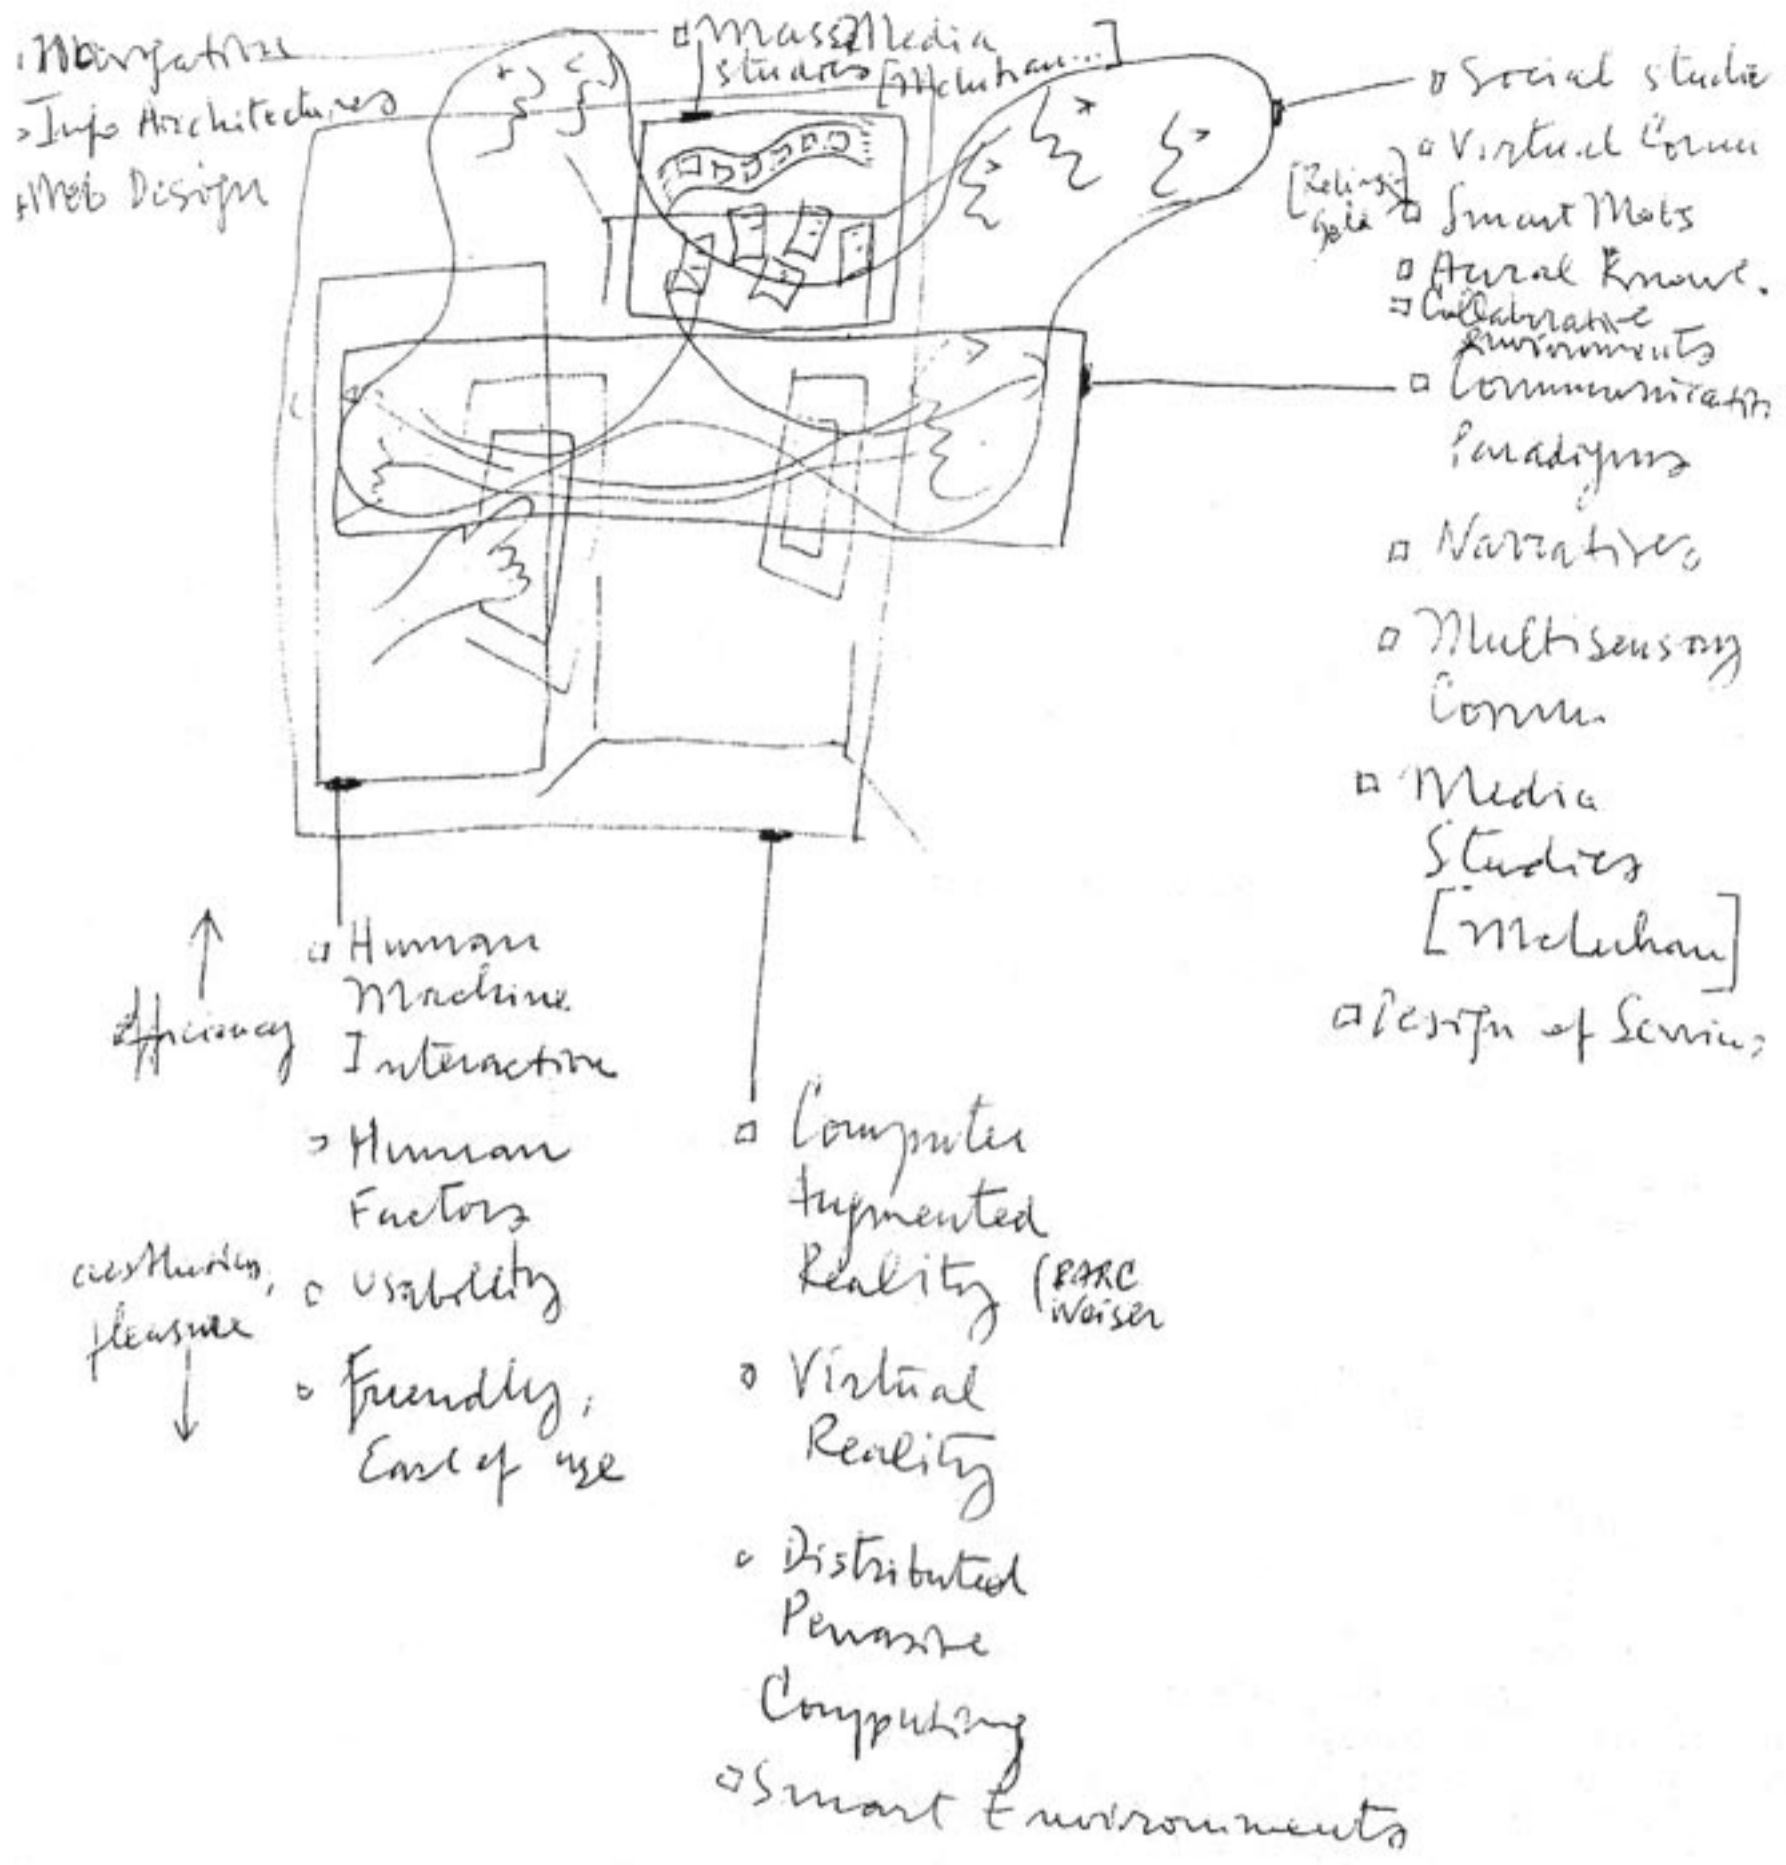 Navigation
Info Architectures
Web Design
Mass Media
Studies [McLuhan...]
Social studie
Virtual Comm
Smart Mobs
Aural Knowl.
Collaborative
Environments
Communicatio
Paradigms
Narratives
Multisensory
Comm.
Media
Studies
[McLuhan]
Design of Servic
Efficiency
Human
Machine
Interaction
Human
Factors
Usability
Friendly,
Ease of use
aesthetics,
pleasure
Computer
Augmented
Reality (PARC
Weiser
Virtual
Reality
Distributed
Pervasive
Computing
Smart Environments